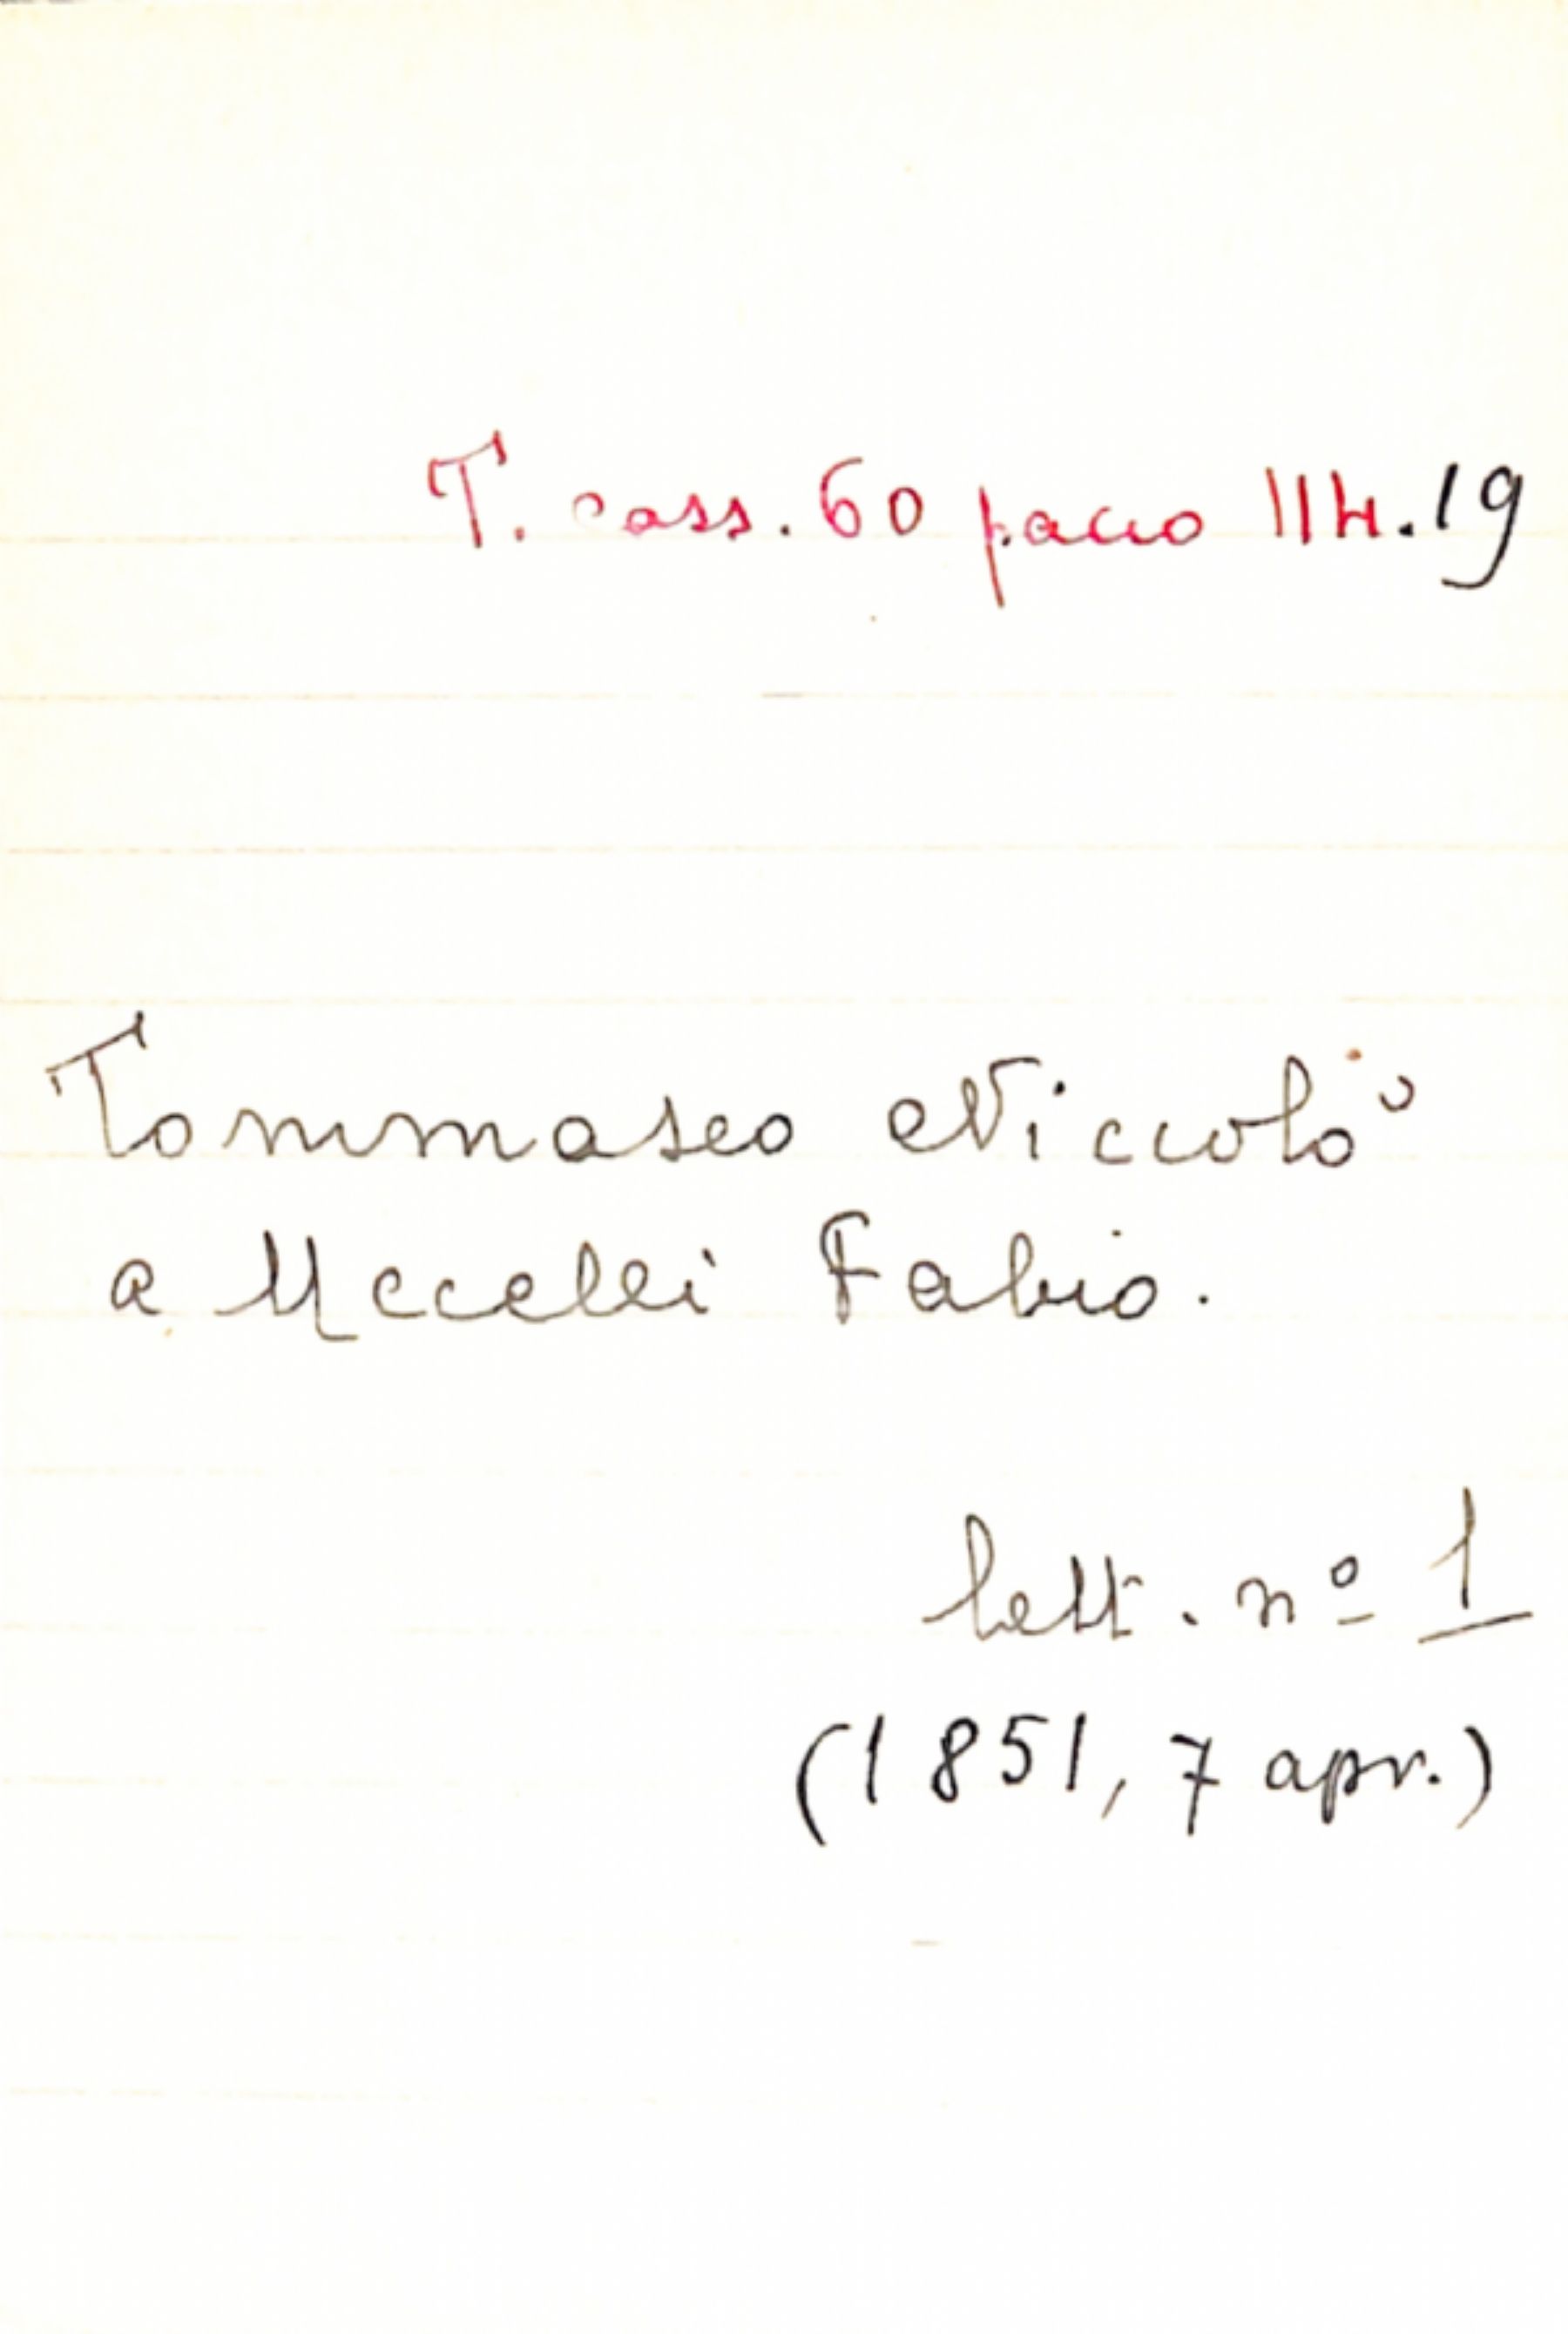 T. cass. 60 pacco 114.19
Tommaseo Niccolò
a Uccelli Fabio.
lett. nº 1
(1851, 7 apr.)